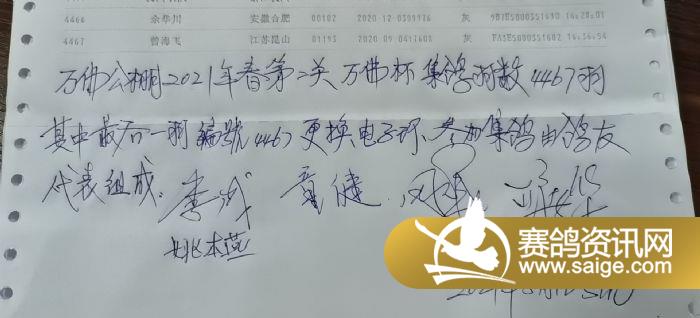 4466 余华川 安徽合肥 00102 2020-12-0399976 灰 9B7E5000351690 16:28:01
4467 曾海飞 江苏昆山 01193 2020-09-0417608 灰 FA3E5000351682 16:36:54
万佛公棚2021年春第二关万佛杯集鸽羽数4467羽
其中最后一羽编號4467更换电子环、参加集鸽由鸽友
代表组成: 李 童健
姚本燕
赛鸽资讯网
www.saige.com